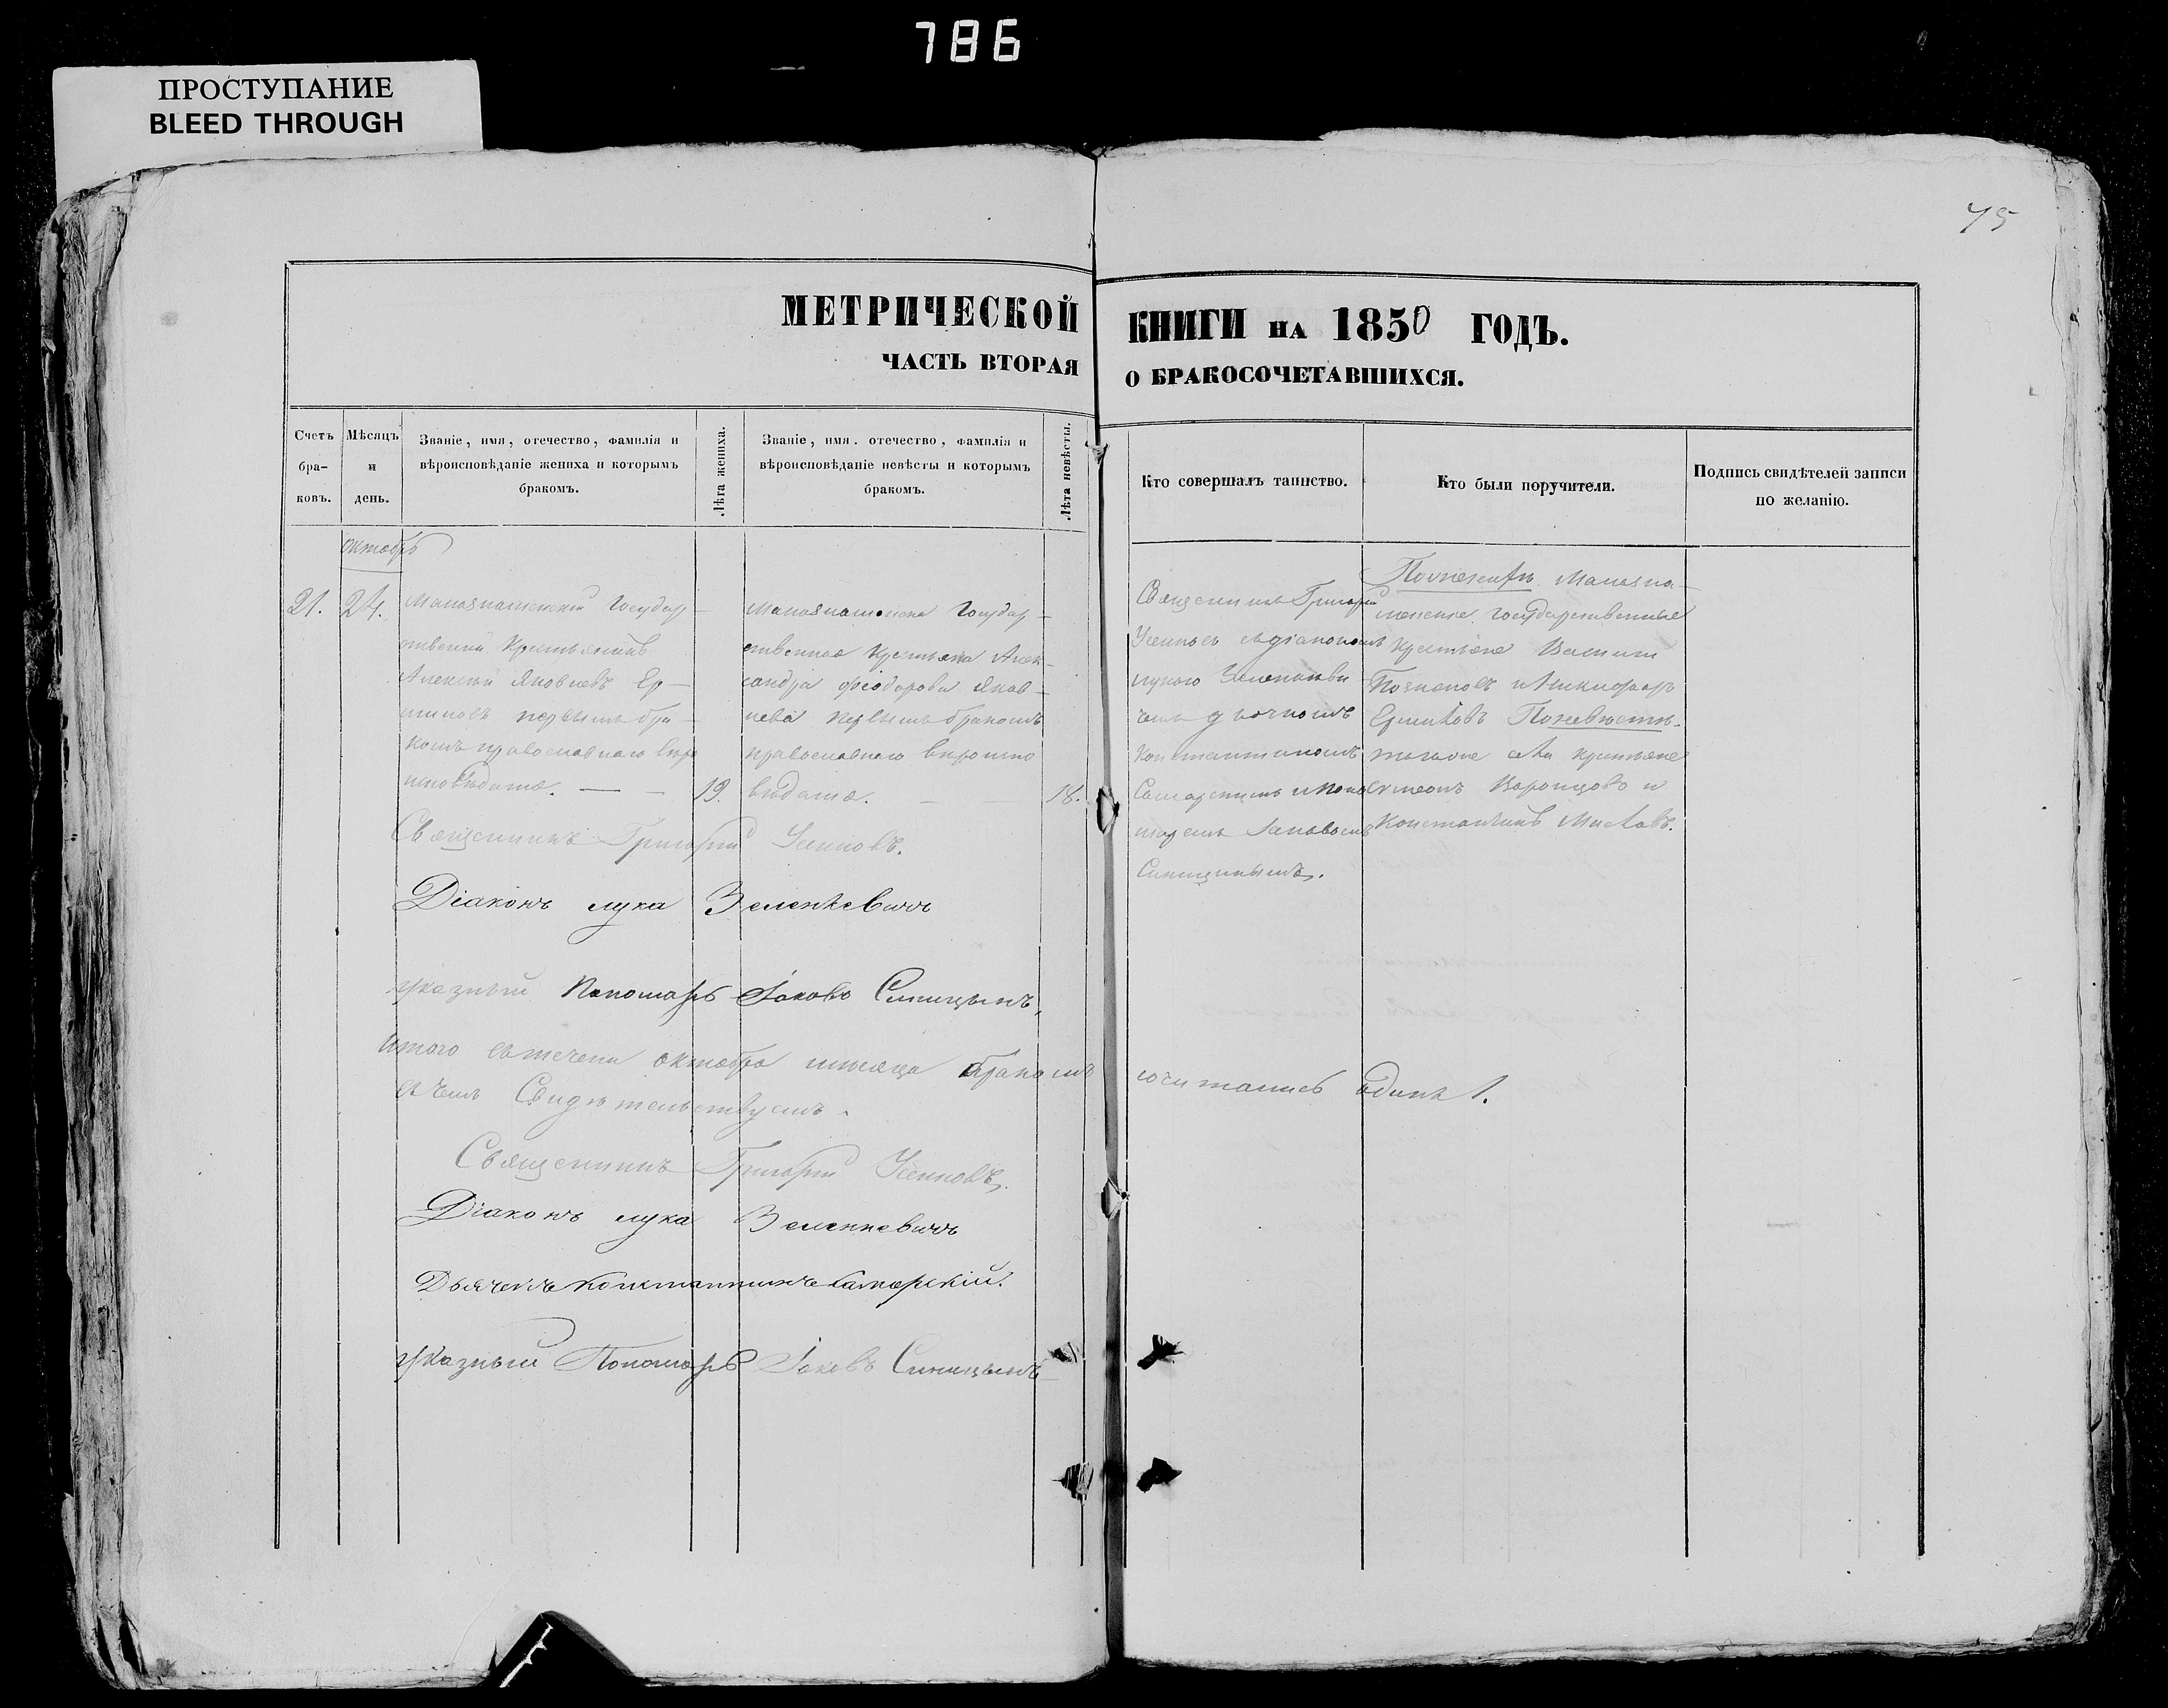 786
ПРОСТУПАНИЕ
BLEED THROUGH
75
МЕТРИЧЕСКОЙ КНИГИ НА 1850 ГОДЪ.
ЧАСТЬ ВТОРАЯ О БРАКОСОЧЕТАВШИХСЯ.
Счетъ бра-ковъ.
Мѣсяцъ и день.
Званіе, имя, отечество, фамилія и
вѣроисповѣданіе жениха и которымъ
бракомъ.
Лѣта жениха.
Званіе, имя. отечество, фамилія и
вѣроисповѣданіе невѣсты и которымъ
бракомъ.
Лѣта невѣсты.
Кто совершалъ таинство.
Кто были поручители.
Подпись свидѣтелей записи
по желанію.
октябрь
21. 24.
Государ-
ственный Крестьянинъ
Алексѣй Яковлевъ Ер-
шиковъ первымъ бра-
комъ православнаго вѣро
исповѣданія. — — 19.
Государ-
ственная крестьянка Алек-
сандра Феодорова Яков-
лева первымъ бракомъ
православнаго вѣроиспо
вѣданія. — — 18.
Священникъ Григорій
съ діакономъ
Лукою Зеленкеви
чемъ дьячкомъ
Константиномъ
и поно
маремъ Іаковомъ
Синицынымъ.
государственные
крестьяне Василій
и Никифоръ
Ершиковъ По невѣстѣ
крестьяне
Симеонъ Воронцовъ и
Константинъ
Священникъ Григорій
Діаконъ Лука Зеленкевичъ
Указный Пономарь Іаковъ Синицынъ,
Итого въ теченіи октября мѣсяца бракомъ сочитались одинъ 1.
въ чемъ Свидѣтельствуемъ.
Священникъ Григорій
Діаконъ Лука Зеленкевичъ
Дьячекъ Константинъ
Указный Пономарь Іаковъ Синицынъ